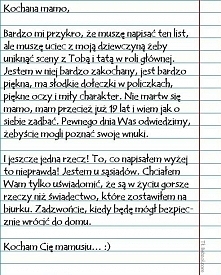 Kochana mamo,
Bardzo mi przykro, że muszę napisać ten list,
ale muszę uciec z moją dziewczyną żeby
uniknąć sceny z Tobą i tatą w roli głównej.
Jestem w niej bardzo zakochany, jest bardzo
piękna, ma słodkie dołeczki w policzkach,
piękne oczy i miły charakter. Nie martw się
mamo, mam przecież już 19 lat i wiem jak o
siebie zadbać. Pewnego dnia Was odwiedzimy,
żebyście mogli poznać swoje wnuki.
I jeszcze jedna rzecz! To, co napisałem wyżej
to nieprawda! Jestem u sąsiadów. Chciałem
Wam tylko uświadomić, że są w życiu gorsze
rzeczy niż świadectwo, które zostawiłem na
biurku. Zadzwońcie, kiedy będę mógł bezpiecz-
nie wrócić do domu.
Kocham Cię mamusiu... :)